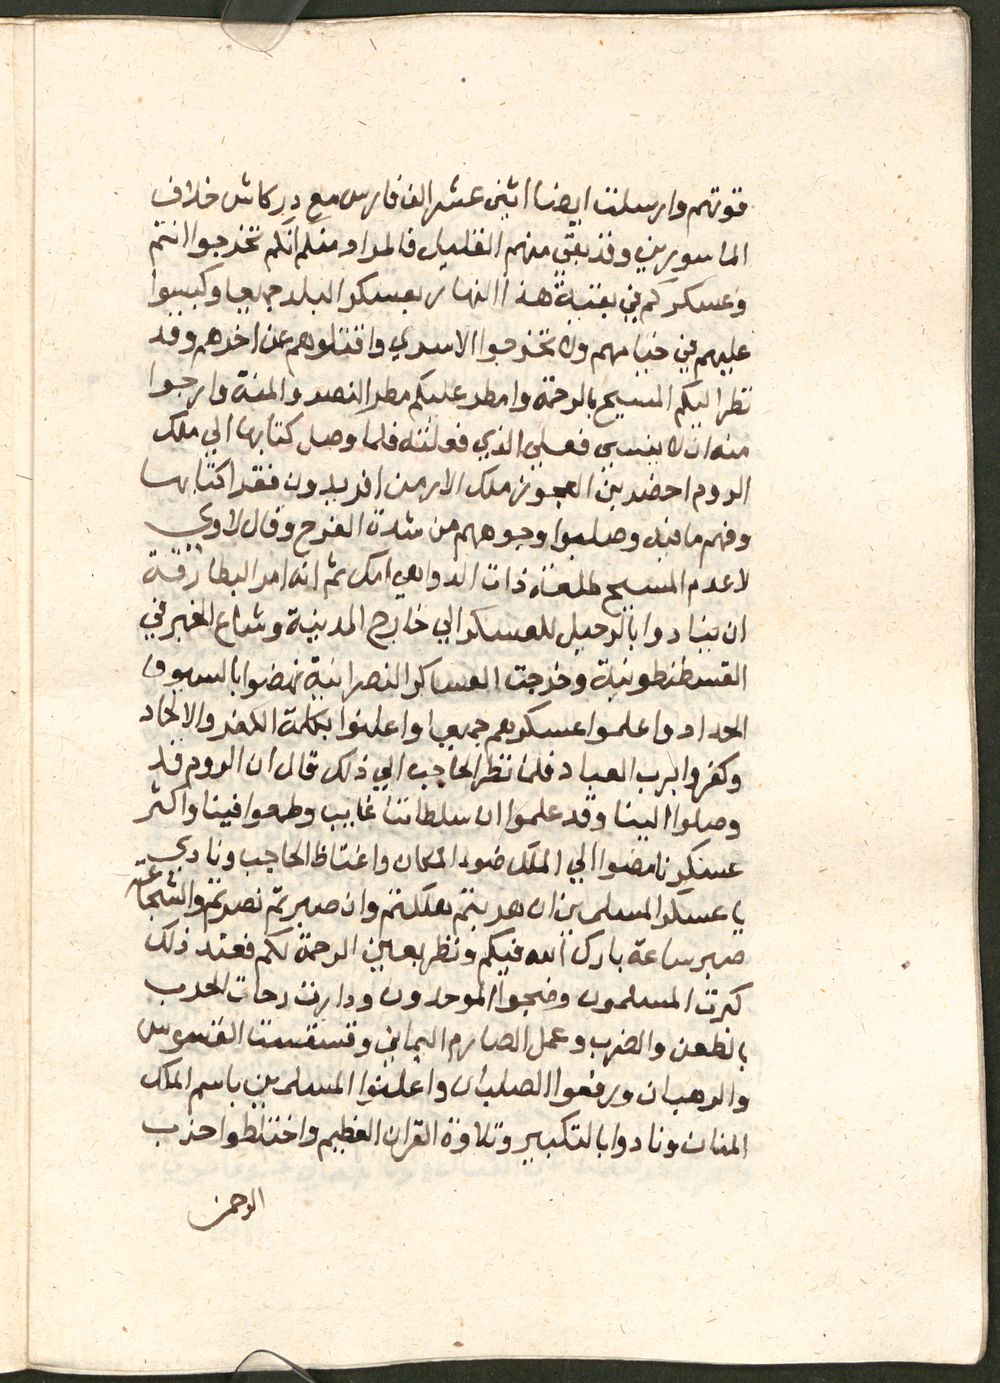 قوتهم وارسلت ايضا اثني عشر الف فارس مع دركاش خلاف
الماسورين وقد بقي منهم القليل فالمراد منكم انكم تخرجوا انتم
وعسكركم في بقية هذا النهار بعسكر البلد جميعا وكبسوا
عليهم في خيامهم ولا تخرجوا الاسري واقتلوهم عن اخرهم وقد
نظر اليكم المسيح بالرحمة وامطر عليكم مطر النصر والمنة وارجوا
منه ان لا ينسي فعلي الذي فعلته فلما وصل كتابها الي ملك
الروم احضر بين العجوز ملك الارمن افريدون فقرا كتابها
وفهم ما فيه وصلبوا وجوههم من شدة الفرح وقال لاوي
لا عدم المسيح طلعة ذات الدواهي امك ثم انه امر البطارقة
ان ينادوا بالرحيل للعسكر الي خارج المدينة وشاع الخبر في
القسطنطونية وخرجت العساكر النصرانية نهضوا بالسيوف
الحداد واعلموا عسكرهم جميعا واعلنوا بكلمة الكفر والالحاد
وكفروا برب العباد فلما نظر الحاجب الي ذلك قال ان الروم قد
وصلوا الينا وقد علموا ان سلطاننا غايب وطمعوا فينا واكثر
عسكرنا مضوا الي الملك ضوء المكان واغتاظ الحاجب ونادي
يا عسكر المسلمين ان هربتم هلكتم وان صبرتم نصرتم والشجاعة
صبر ساعة بارك الله فيكم ونظر بعين الرحمة لكم فعند ذلك
كبرت المسلمون وضجوا الموحدون ودارت رحات الحرب
بالطعن والضرب وعمل الصارم اليماني وقسقست القسوس
والرهبان ورفعوا الصلبان واعلنوا المسلمين باسم الملك
المنان ونادوا بالتكبير وتلاوة القران العظيم واختلطوا حزب
الرحمن